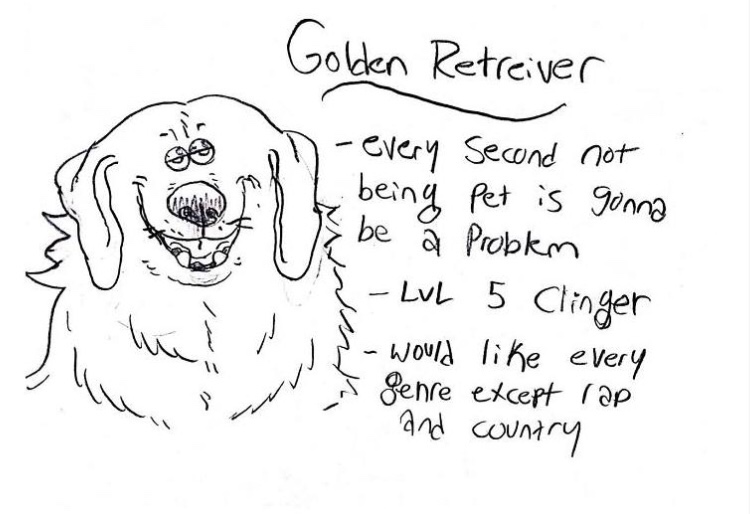 Golden Retreiver
- every second not
being pet is gonna
be a problem
- LVL 5 Clinger
- would like every
genre except rap
and country